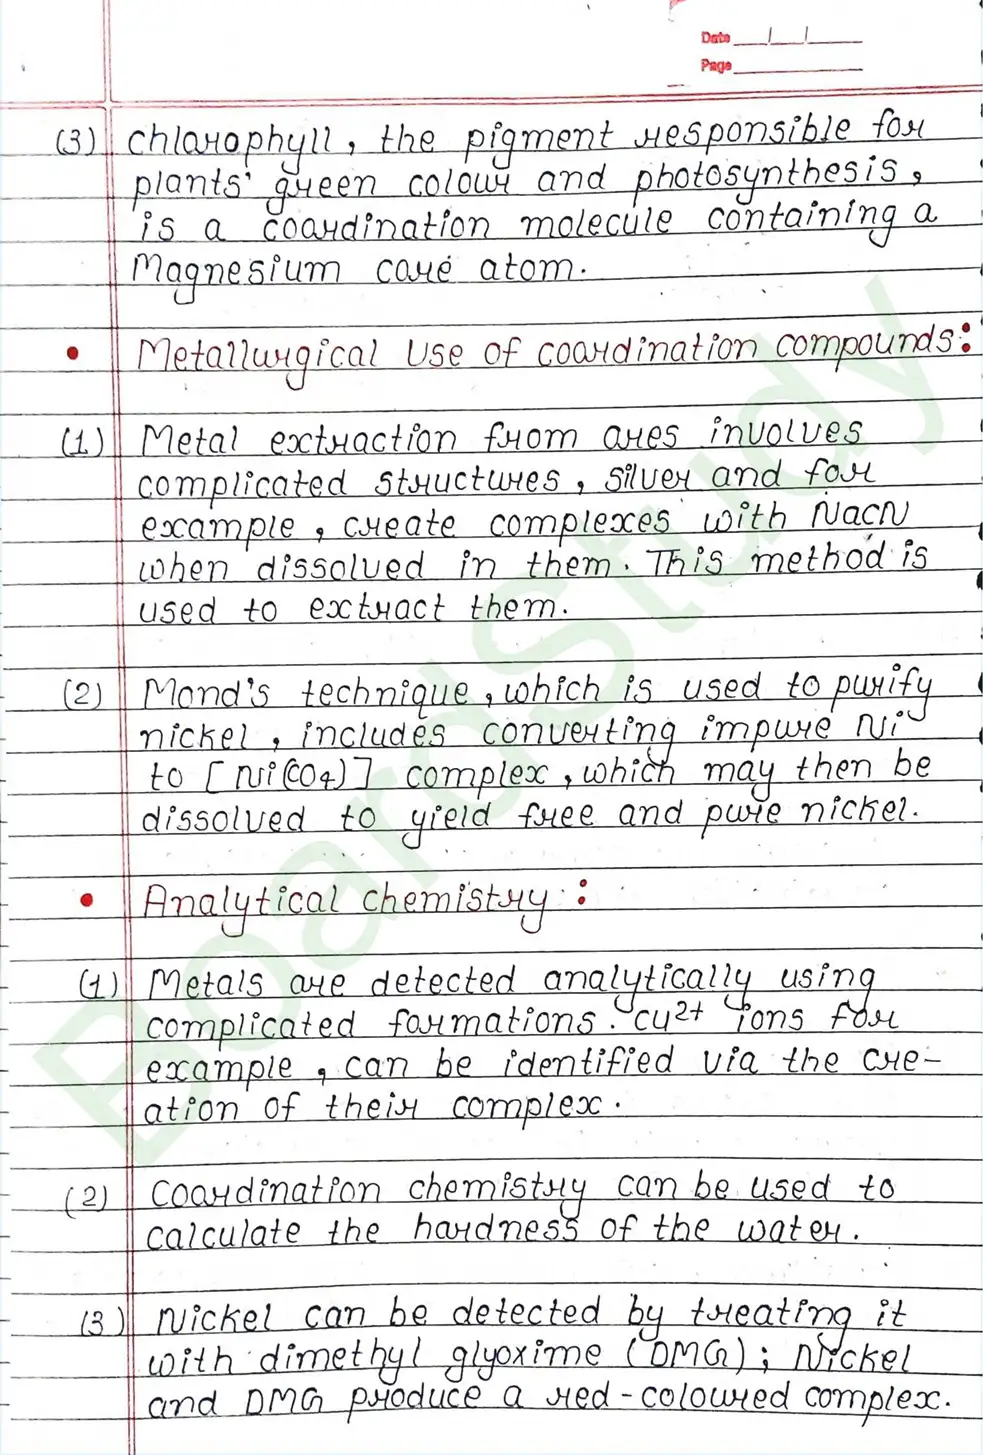 Date __/__/__
Page
(3) chlorophyll, the pigment responsible for
plants' green colour and photosynthesis,
is a coordination molecule containing a
Magnesium core atom.
• Metallurgical Use of coordination compounds:
(1) Metal extraction from ores involves
complicated structures, silver and for
example, create complexes with NaCN
when dissolved in them. This method is
used to extract them.
(2) Mond's technique, which is used to purify
nickel, includes converting impure Ni
to [Ni(CO4)] complex, which may then be
dissolved to yield free and pure nickel.
• Analytical chemistry:
(1) Metals are detected analytically using
complicated formations. Cu2+ ions for
example, can be identified via the cre-
ation of their complex.
(2) Coordination chemistry can be used to
calculate the hardness of the water.
(3) Nickel can be detected by treating it
with dimethyl glyoxime (DMG); Nickel
and DMG produce a red-coloured complex.
BoardStudy